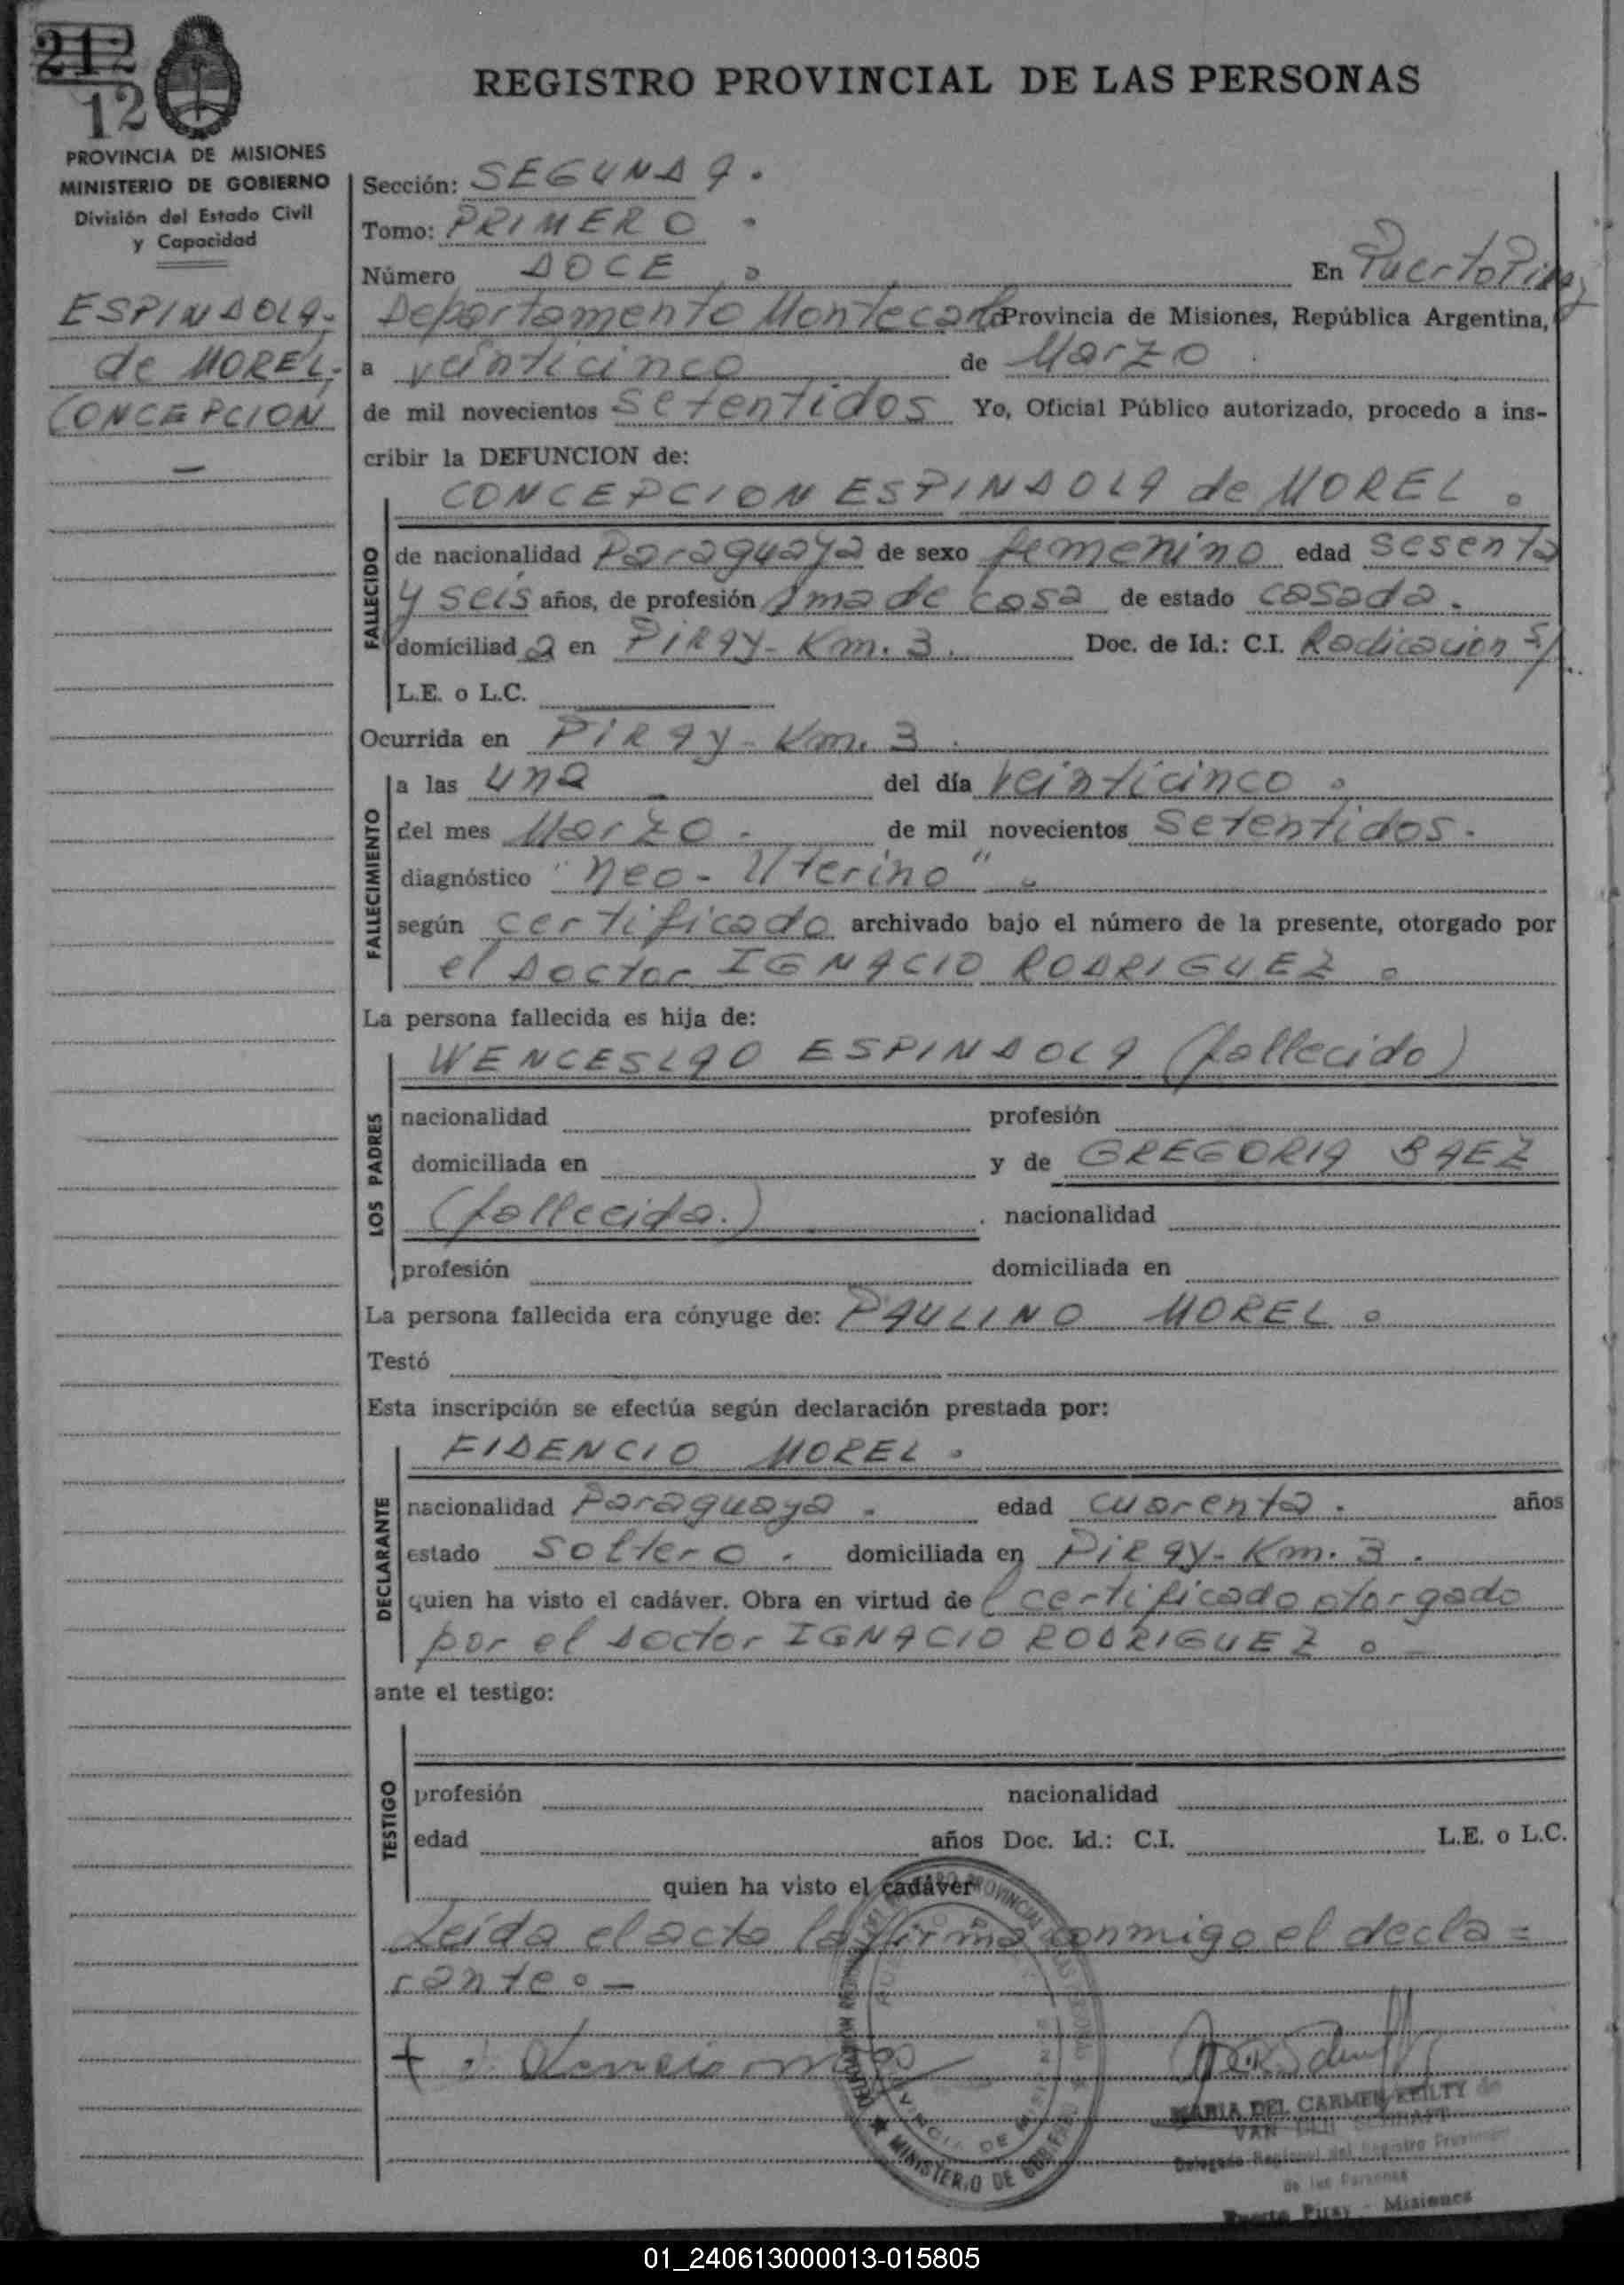 212
12
REGISTRO PROVINCIAL DE LAS PERSONAS
PROVINCIA DE MISIONES
MINISTERIO DE GOBIERNO
División del Estado Civil
y Capacidad
ESPINDOLA-
de MOREL,-
CONCEPCION
Sección: SEGUNDA.
Tomo: PRIMERO.
Número DOCE. En Puerto Piray
Departamento Montecarlo Provincia de Misiones, República Argentina,
a veinticinco de Marzo.
de mil novecientos setentidos Yo, Oficial Público autorizado, procedo a ins-
cribir la DEFUNCION de:
CONCEPCION ESPINDOLA de MOREL.
FALLECIDO
de nacionalidad Paraguaya de sexo femenino edad sesenta
y seis años, de profesión Ama de casa de estado casada.
domiciliada en PIRAY- Km. 3. Doc. de Id.: C.I. Radicacion s/.
L.E. o L.C.
Ocurrida en PIRAY- Km. 3.
FALLECIMIENTO
a las una del día veinticinco.
del mes Marzo. de mil novecientos setentidos.
diagnóstico "neo- Uterino".
según certificado archivado bajo el número de la presente, otorgado por
el Doctor IGNACIO RODRIGUEZ.
La persona fallecida es hija de:
LOS PADRES
WENCESLAO ESPINDOLA (fallecido)
nacionalidad profesión
domiciliada en y de GREGORIA BAEZ
(fallecida.) . nacionalidad
profesión domiciliada en
La persona fallecida era cónyuge de: PAULINO MOREL.
Testó
Esta inscripción se efectúa según declaración prestada por:
DECLARANTE
FIDENCIO MOREL.
nacionalidad Paraguaya. edad cuarenta. años
estado soltero. domiciliada en PIRAY- Km. 3.
quien ha visto el cadáver. Obra en virtud del certificado otorgado
por el Doctor IGNACIO RODRIGUEZ. -
ante el testigo:
TESTIGO
profesión nacionalidad
edad años Doc. Id.: C.I. L.E. o L.C.
quien ha visto el cadáver
Leída el acta la firma conmigo el decla=
rante.-
MARIA DEL CARMEN KEILTY de
VAN DER
Delegada Regional del Registro Provincial
de las Personas
Puerto Piray - Misiones
MINISTERIO DE GOBIERNO
PROVINCIA DE MISIONES
01_240613000013-015805